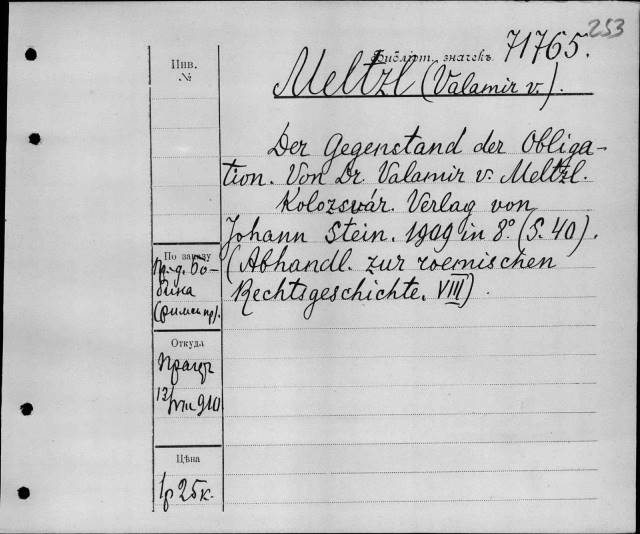 253
Библіот. значекъ 71765.
Инв.
№
Meltzl (Valamir v.).
Der Gegenstand der Obliga-
tion. Von Dr. Valamir v. Meltzl.
Kolozsvár. Verlag von
Johann Stein. 1909 in 8° (S. 40).
(Abhandl. zur roemischen
Rechtsgeschichte. VIII)
По заказу
пр.-д. Бо-
бина
Откуда
12/VIII 910
Цѣна
1р 25к.